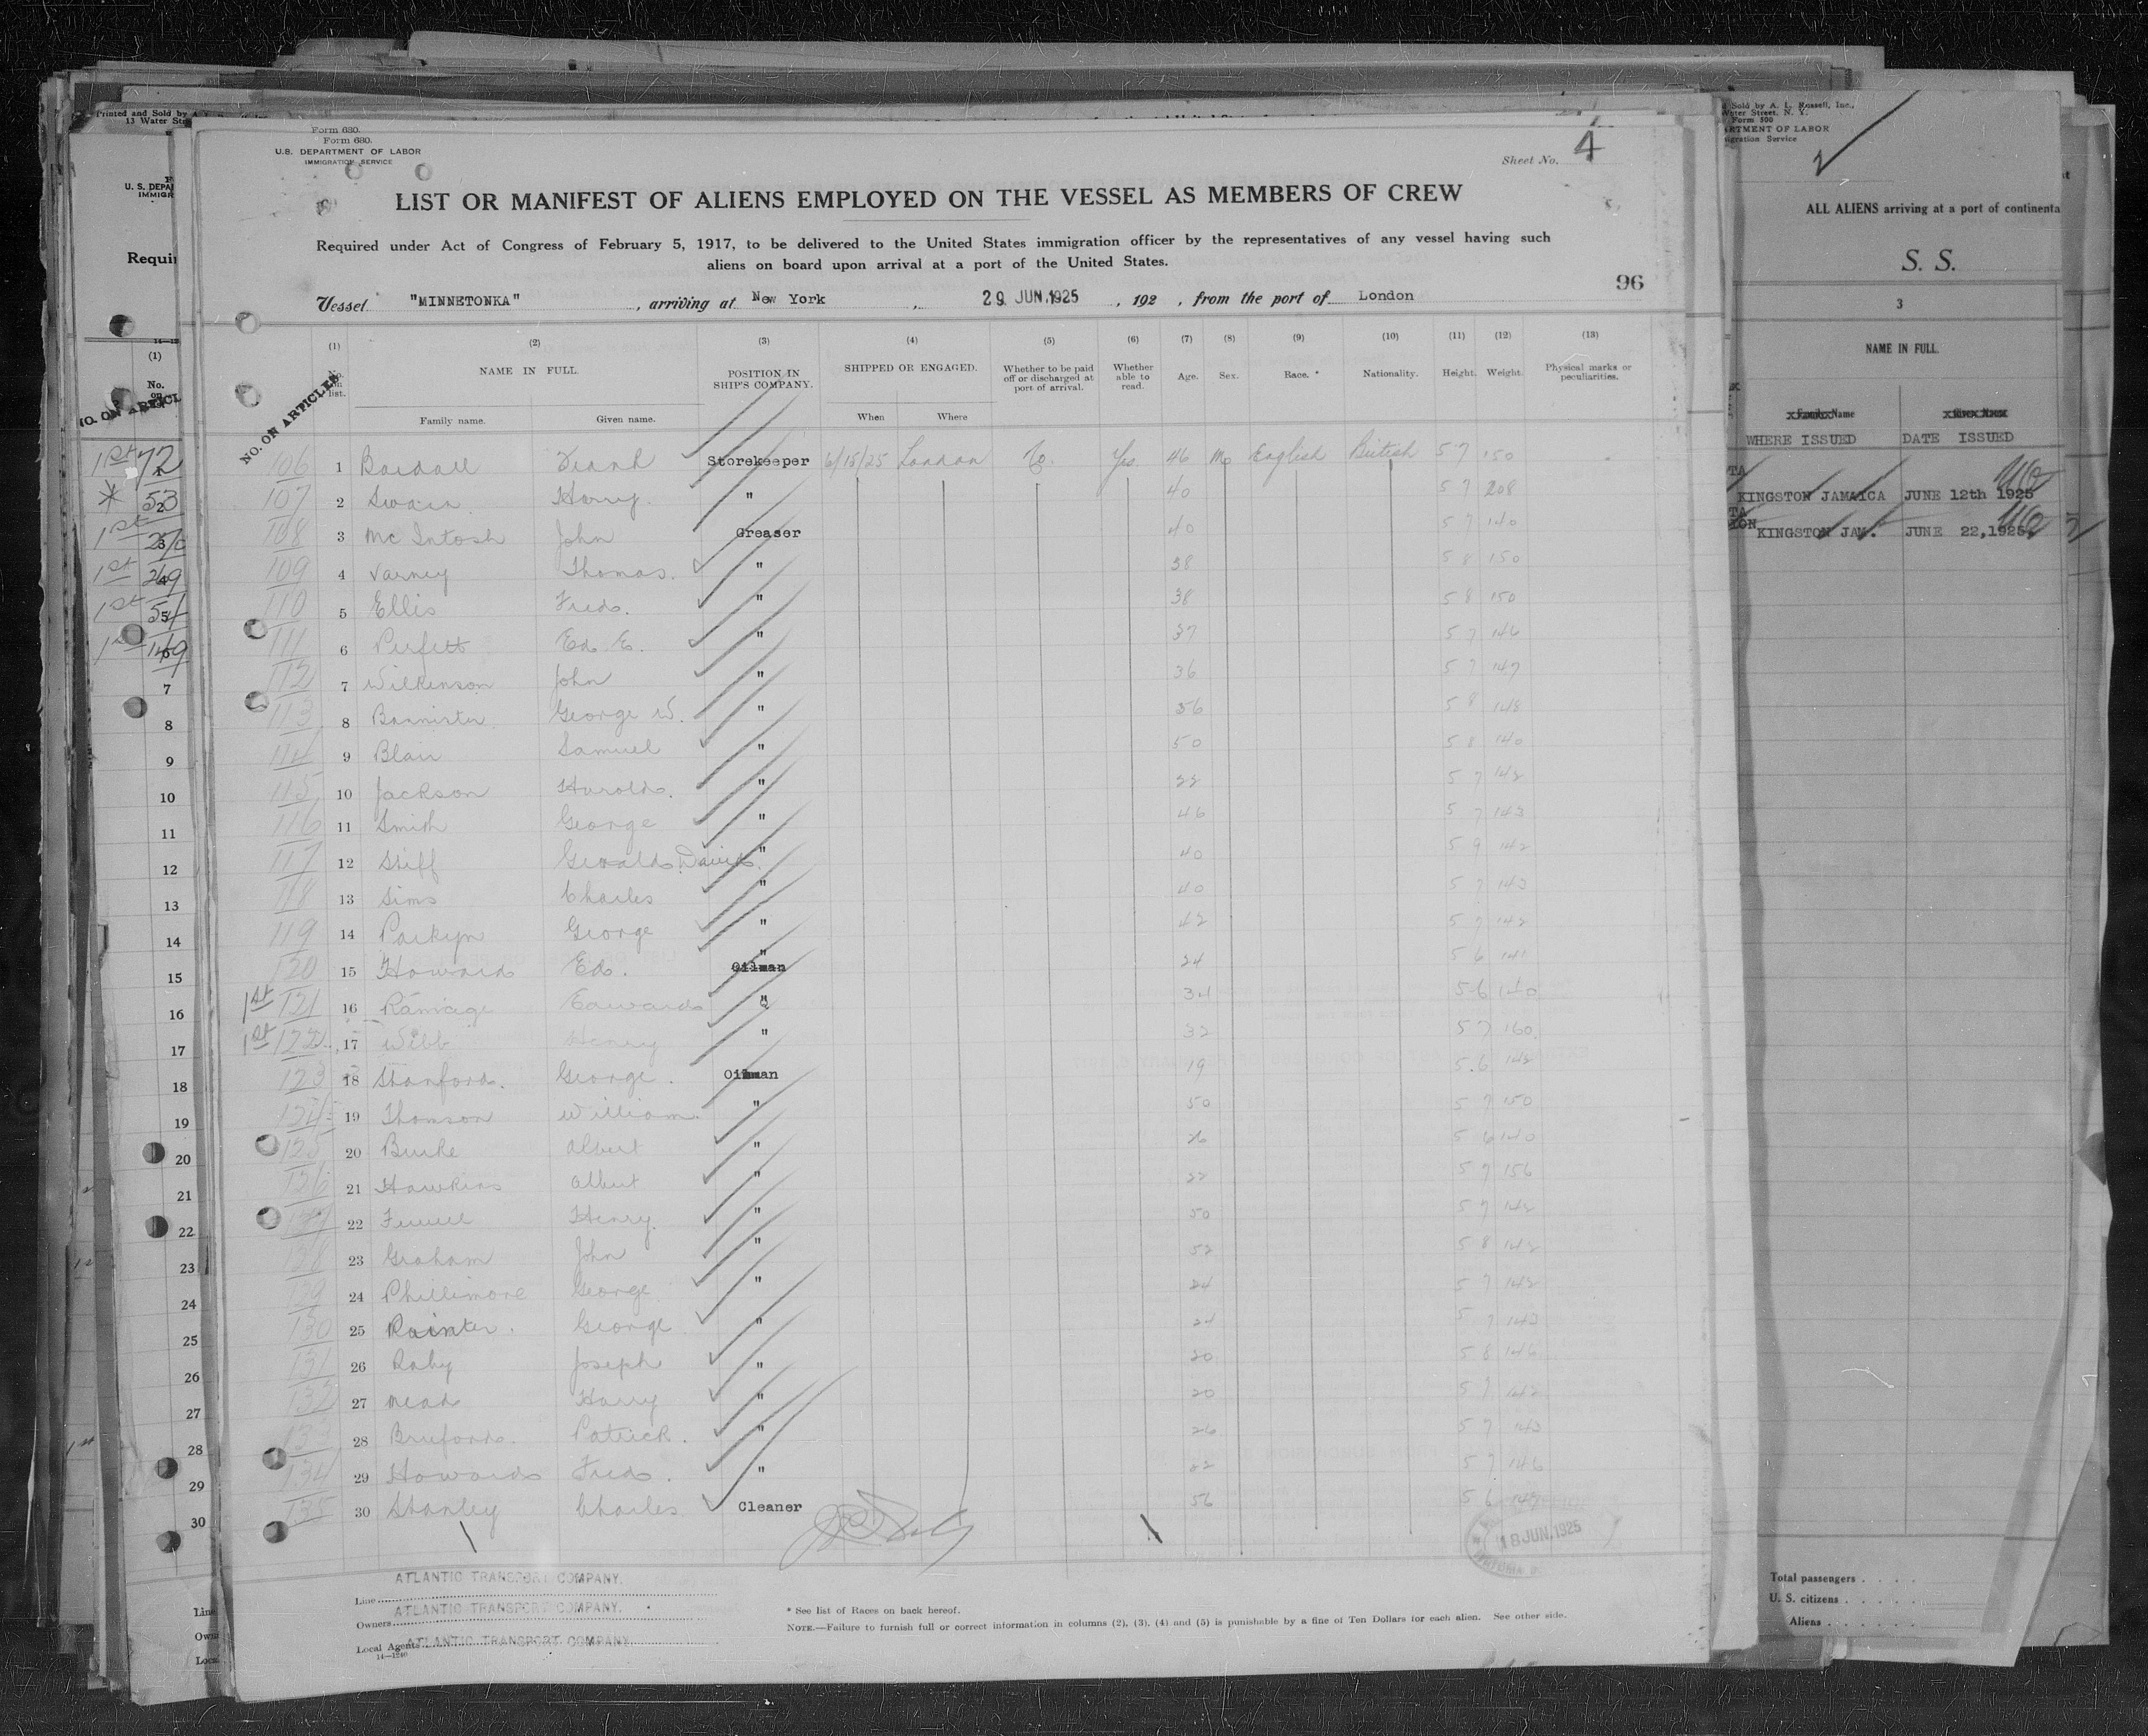 Form 680.
Form 680.
U.S. DEPARTMENT OF LABOR
IMMIGRATION SERVICE
Sheet No. 4
LIST OR MANIFEST OF ALIENS EMPLOYED ON THE VESSEL AS MEMBERS OF CREW
Required under Act of Congress of February 5, 1917, to be delivered to the United States immigration officer by the representatives of any vessel having such
aliens on board upon arrival at a port of the United States.
96
Vessel "MINNETONKA", arriving at New York, 29 JUN.1925, 192 , from the port of London
(1) (2) (3) (4) (5) (6) (7) (8) (9) (10) (11) (12) (13)
NO. ON ARTICLES
No. on list. NAME IN FULL. POSITION IN SHIP'S COMPANY. SHIPPED OR ENGAGED. Whether to be paid off or discharged at port of arrival. Whether able to read. Age. Sex. Race. * Nationality. Height. Weight. Physical marks or peculiarities.
Family name. Given name. When Where
106 1 Frank Storekeeper 6/15/25 London Yes 46 M English British 5 7 150
107 2 Harry. " 40 5 7 208
108 3 Mc Intosh John Greaser 40 5 7 140
109 4 Varney Thomas. " 38 5 8 150
110 5 Ellis Fred. " 38 5 8 150
111 6 Perfett Ed. E. " 37 5 7 146
112 7 Wilkinson John " 36 5 7 147
113 8 Bannister George W. " 56 5 8 148
114 9 Blair Samuel " 50 5 8 140
115 10 Jackson Harold. " 22 5 7 142
116 11 Smith George " 46 5 7 143
117 12 Stiff Gerald David. " 40 5 9 142
118 13 Sims Charles " 40 5 7 143
119 14 Parkyn George " 42 5 7 142
120 15 Howard Ed. " 24 5 6 141
1st 121 16 Ramage Edward " 34 5 6 140
1st 122 17 Webb Henry " 32 5 7 160
123 18 Stanford. George. Oilman 19 5.6 142
124 19 Thomson William " 50 5 7 150
125 20 Burke Albert " 26 5 6 140
126 21 Hawkins Albert " 22 5 7 156
127 22 Henry. " 50 5 7 142
128 23 Graham John " 52 5 8 142
129 24 Phillimore George " 24 5 7 142
130 25 George " 24 5 7 143
131 26 Raby Joseph " 20 5 8 146
132 27 Mead Harry " 20 5 7 142
133 28 Bruford. Patrick. " 26 5 7 143
134 29 Howard Fred. " 22 5 7 146
135 30 Stanley Charles Cleaner 56 5 6
18 JUN.1925
Line ATLANTIC TRANSPORT COMPANY.
Owners ATLANTIC TRANSPORT COMPANY.
Local Agents ATLANTIC TRANSPORT COMPANY
14—1240
* See list of Races on back hereof.
NOTE.—Failure to furnish full or correct information in columns (2), (3), (4) and (5) is punishable by a fine of Ten Dollars for each alien. See other side.
Printed and Sold by
13 Water
(1)
No.
7
8
9
10
11
12
13
14
15
16
17
18
19
20
21
22
23
24
25
26
27
28
29
30
Line
Sold by A. L. Russell, Inc.,
Water Street, N. Y.
Form 500
ALL ALIENS arriving at a port of continenta
S. S.
3
NAME IN FULL.
WHERE ISSUED DATE ISSUED
KINGSTON JAMAICA JUNE 12th 1925
KINGSTON JAM. JUNE 22,1925
Total passengers
U. S. citizens
Aliens